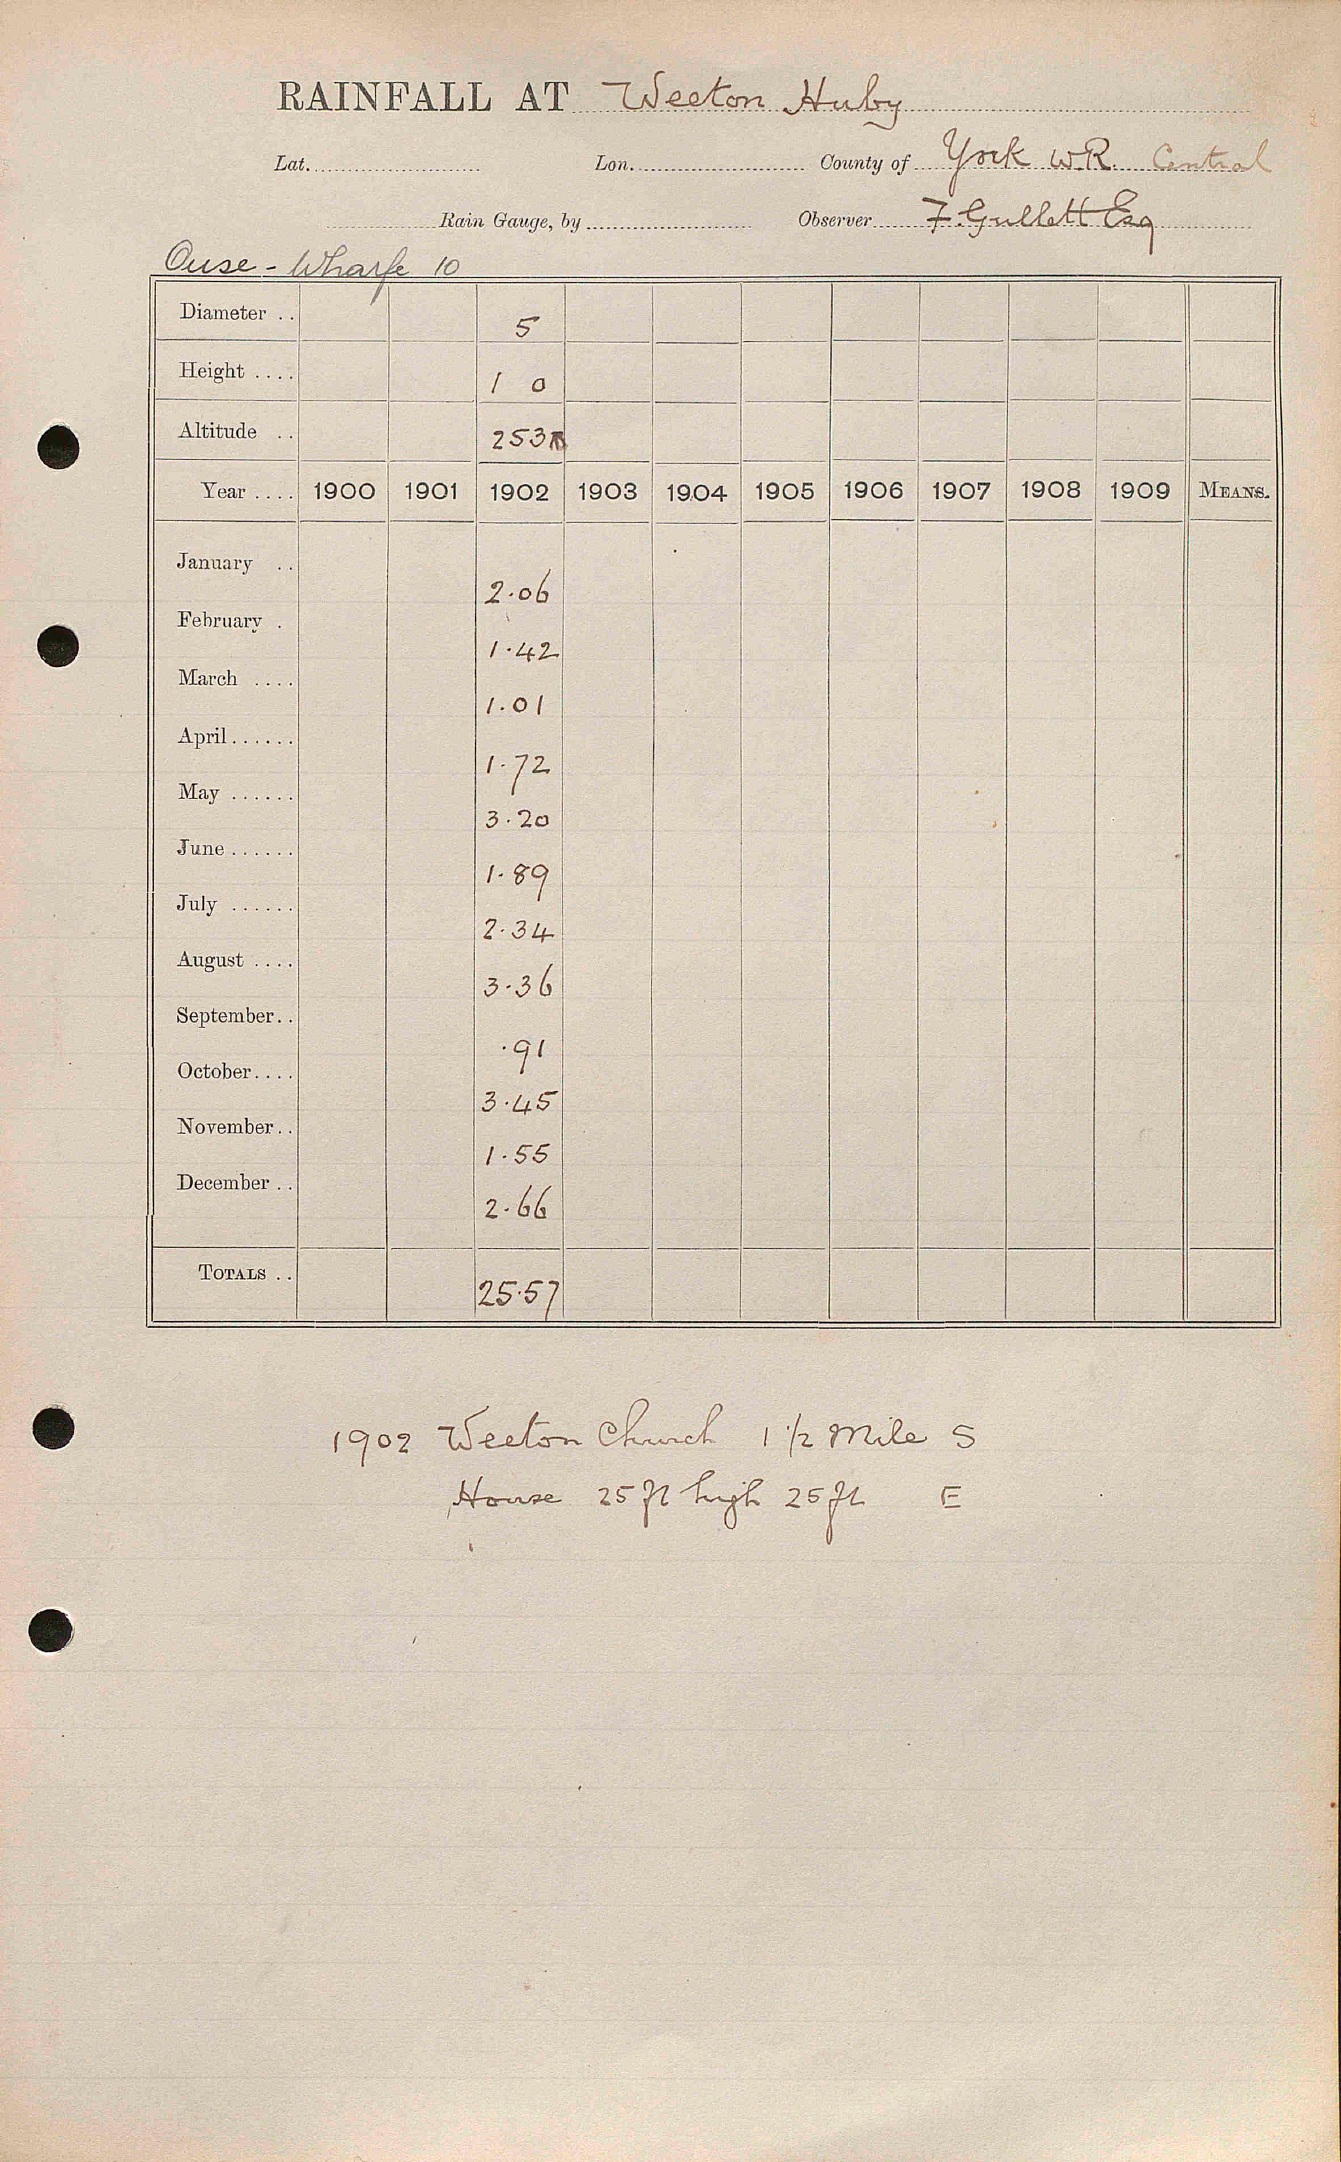 RAINFALL AT Weeton Huby
Lat. Lon. County of York W.R. Central
Rain Gauge, by Observer F. Gullett Esq
Ouse - Wharfe 10
Diameter . . 5
Height . . . . 1 0
Altitude . . 253
Year . . . . 1900 1901 1902 1903 1904 1905 1906 1907 1908 1909 MEANS.
January . . 2.06
February . 1.42
March . . . . 1.01
April . . . . . . 1.72
May . . . . . . 3.20
June . . . . . . 1.89
July . . . . . . 2.34
August . . . . 3.36
September . . .91
October . . . . 3.45
November . . 1.55
December . . 2.66
TOTALS . . 25.57
1902 Weeton Church 1 1/2 Mile S
House 25 ft high 25 ft E